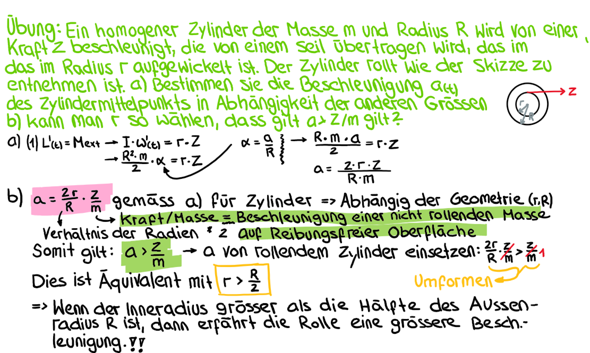 Übung: Ein homogener Zylinder der Masse m und Radius R wird von einer
Kraft Z beschleunigt, die von einem Seil übertragen wird, das im
das im Radius r aufgewickelt ist. Der Zylinder rollt wie der Skizze zu
entnehmen ist. a) Bestimmen sie die Beschleunigung a(t)
des Zylindermittelpunkts in Abhängigkeit der anderen Grössen
b) kann man r so wählen, dass gilt a > Z/m gilt?
Z
a) (1) L'(t) = Mext → I · ω'(t) = r · Z
α = a/R
→ R · m · a / 2 = r · Z
→ R² · m / 2 · α = r · Z
a = 2 · r · Z / R · m
b) a = 2r/R · Z/m gemäss a) für Zylinder => Abhängig der Geometrie (r,R)
→ Kraft/Masse = Beschleunigung einer nicht rollenden Masse
Verhältnis der Radien * Z auf Reibungsfreier Oberfläche
Somit gilt: a > Z/m → a von rollendem Zylinder einsetzen: 2r/R · Z/m > Z/m 1
Dies ist Äquivalent mit r > R/2 Umformen
=> Wenn der Inneradius grösser als die Hälfte des Aussen-
radius R ist, dann erfährt die Rolle eine grössere Besch-
leunigung.!!